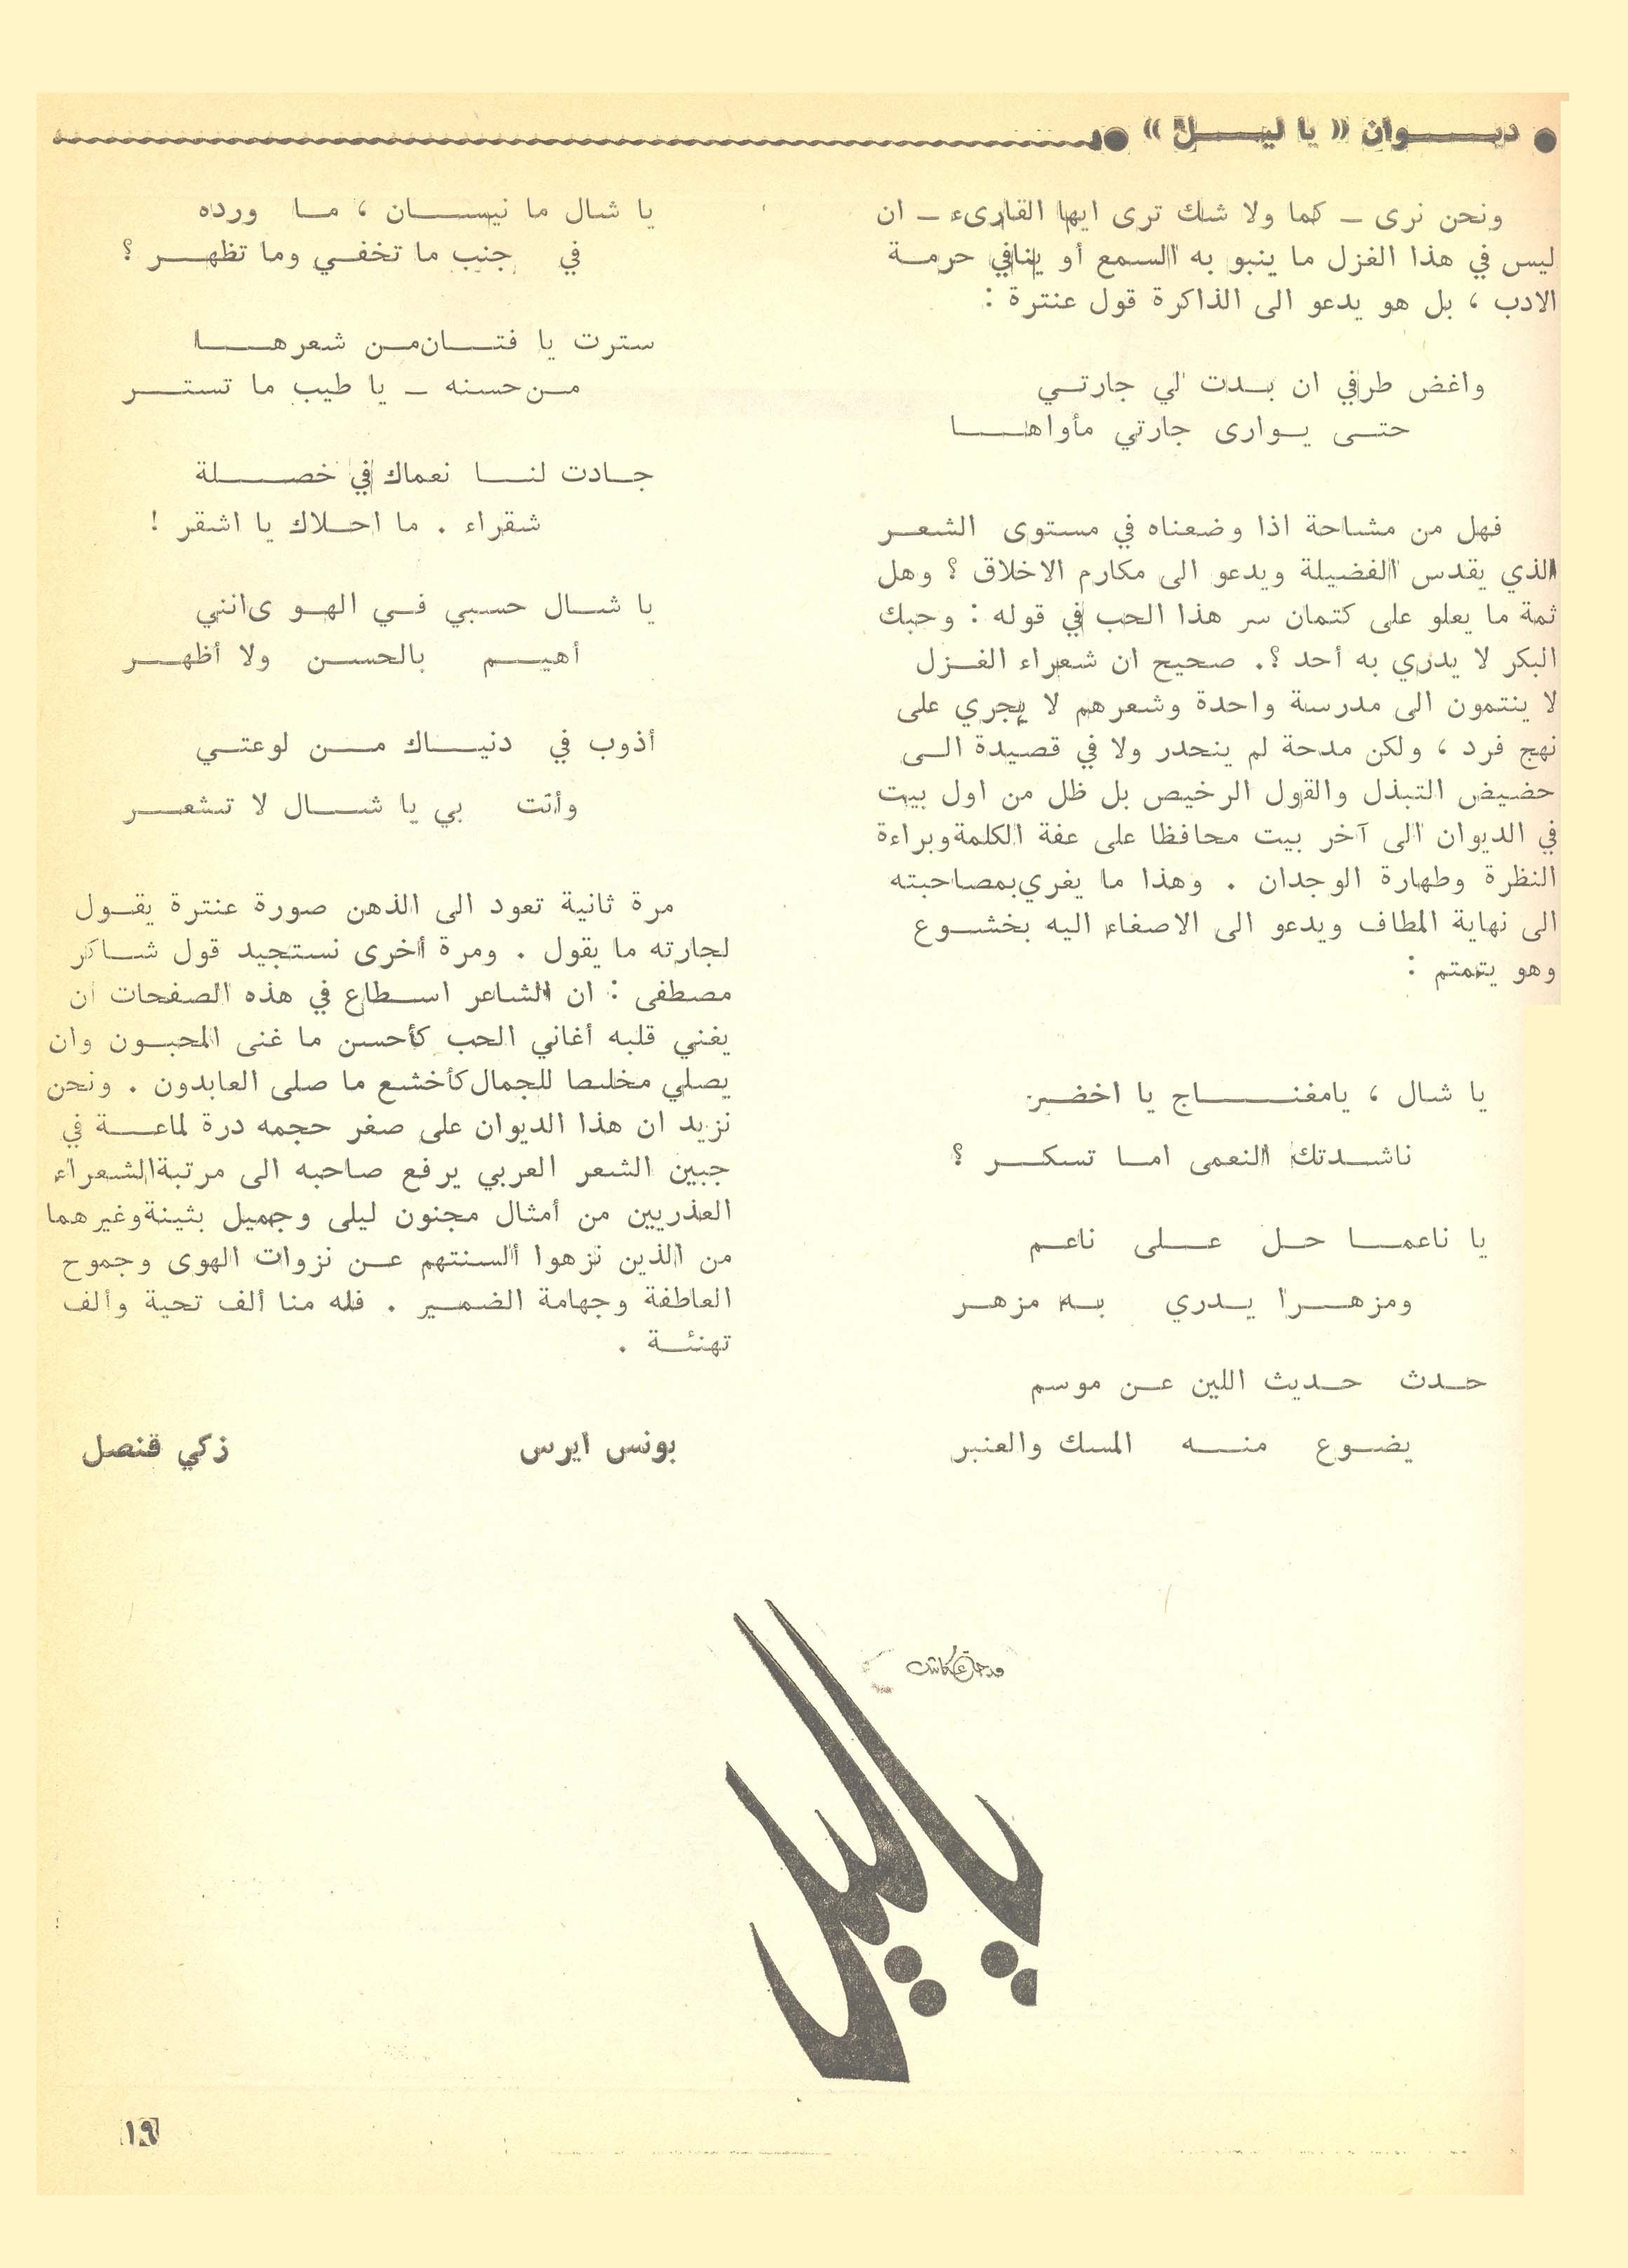 ● ديــوان « يا ليــل » ●
ونحن نرى ــ كما ولا شك ترى ايها القارىء ــ ان
ليس في هذا الغزل ما ينبو به السمع أو ينافي حرمة
الادب ، بل هو يدعو الى الذاكرة قول عنترة :
واغض طرفي ان بدت لي جارتي
حتى يوارى جارتي مأواها
فهل من مشاحة اذا وضعناه في مستوى الشعر
الذي يقدس الفضيلة ويدعو الى مكارم الاخلاق ؟ وهل
ثمة ما يعلو على كتمان سر هذا الحب في قوله : وحبك
البكر لا يدري به أحد ؟. صحيح ان شعراء الغزل
لا ينتمون الى مدرسة واحدة وشعرهم لا يجري على
نهج فرد ، ولكن مدحة لم ينحدر ولا في قصيدة الى
حضيض التبذل والقول الرخيص بل ظل من اول بيت
في الديوان الى آخر بيت محافظا على عفة الكلمة وبراءة
النظرة وطهارة الوجدان . وهذا ما يغري بمصاحبته
الى نهاية المطاف ويدعو الى الاصغاء اليه بخشوع
وهو يتمتم :
يا شال ، يامغناج يا اخضر
ناشدتك النعمى اما تسكر ؟
يا ناعما حل على ناعم
ومزهرا يدري به مزهر
حدث حديث اللين عن موسم
يضوع منه المسك والعنبر
يا شال ما نيسان ، ما ورده
في جنب ما تخفي وما تظهر ؟
سترت يا فتان من شعرها
من حسنه ــ يا طيب ما تستر
جادت لنا نعماك في خصلة
شقراء . ما احلاك يا اشقر !
يا شال حسبي في الهوى انني
أهيم بالحسن ولا أظهر
أذوب في دنياك من لوعتي
وأنت بي يا شال لا تشعر
مرة ثانية تعود الى الذهن صورة عنترة يقول
لجارته ما يقول . ومرة أخرى نستجيد قول شاكر
مصطفى : ان الشاعر اسطاع في هذه الصفحات ان
يغني قلبه أغاني الحب كأحسن ما غنى المحبون وان
يصلي مخلصا للجمال كأخشع ما صلى العابدون . ونحن
نزيد ان هذا الديوان على صغر حجمه درة لماعة في
جبين الشعر العربي يرفع صاحبه الى مرتبة الشعراء
العذريين من أمثال مجنون ليلى وجميل بثينة وغيرهما
من الذين نزهوا ألسنتهم عن نزوات الهوى وجموح
العاطفة وجهامة الضمير . فله منا ألف تحية وألف
تهنئة .
بونس ايرس زكي قنصل
مدحة عكاش
يا ليل
١٩